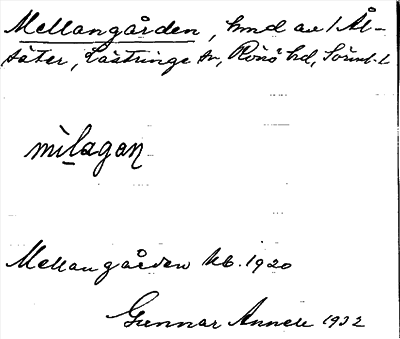 Mellangården, hmd av 1 Ål-
säter, Lästringe sn, Rönö hd, Sörml. l
mìlagaṇ
Mellangården kb. 1920
Gunnar Annell 1932